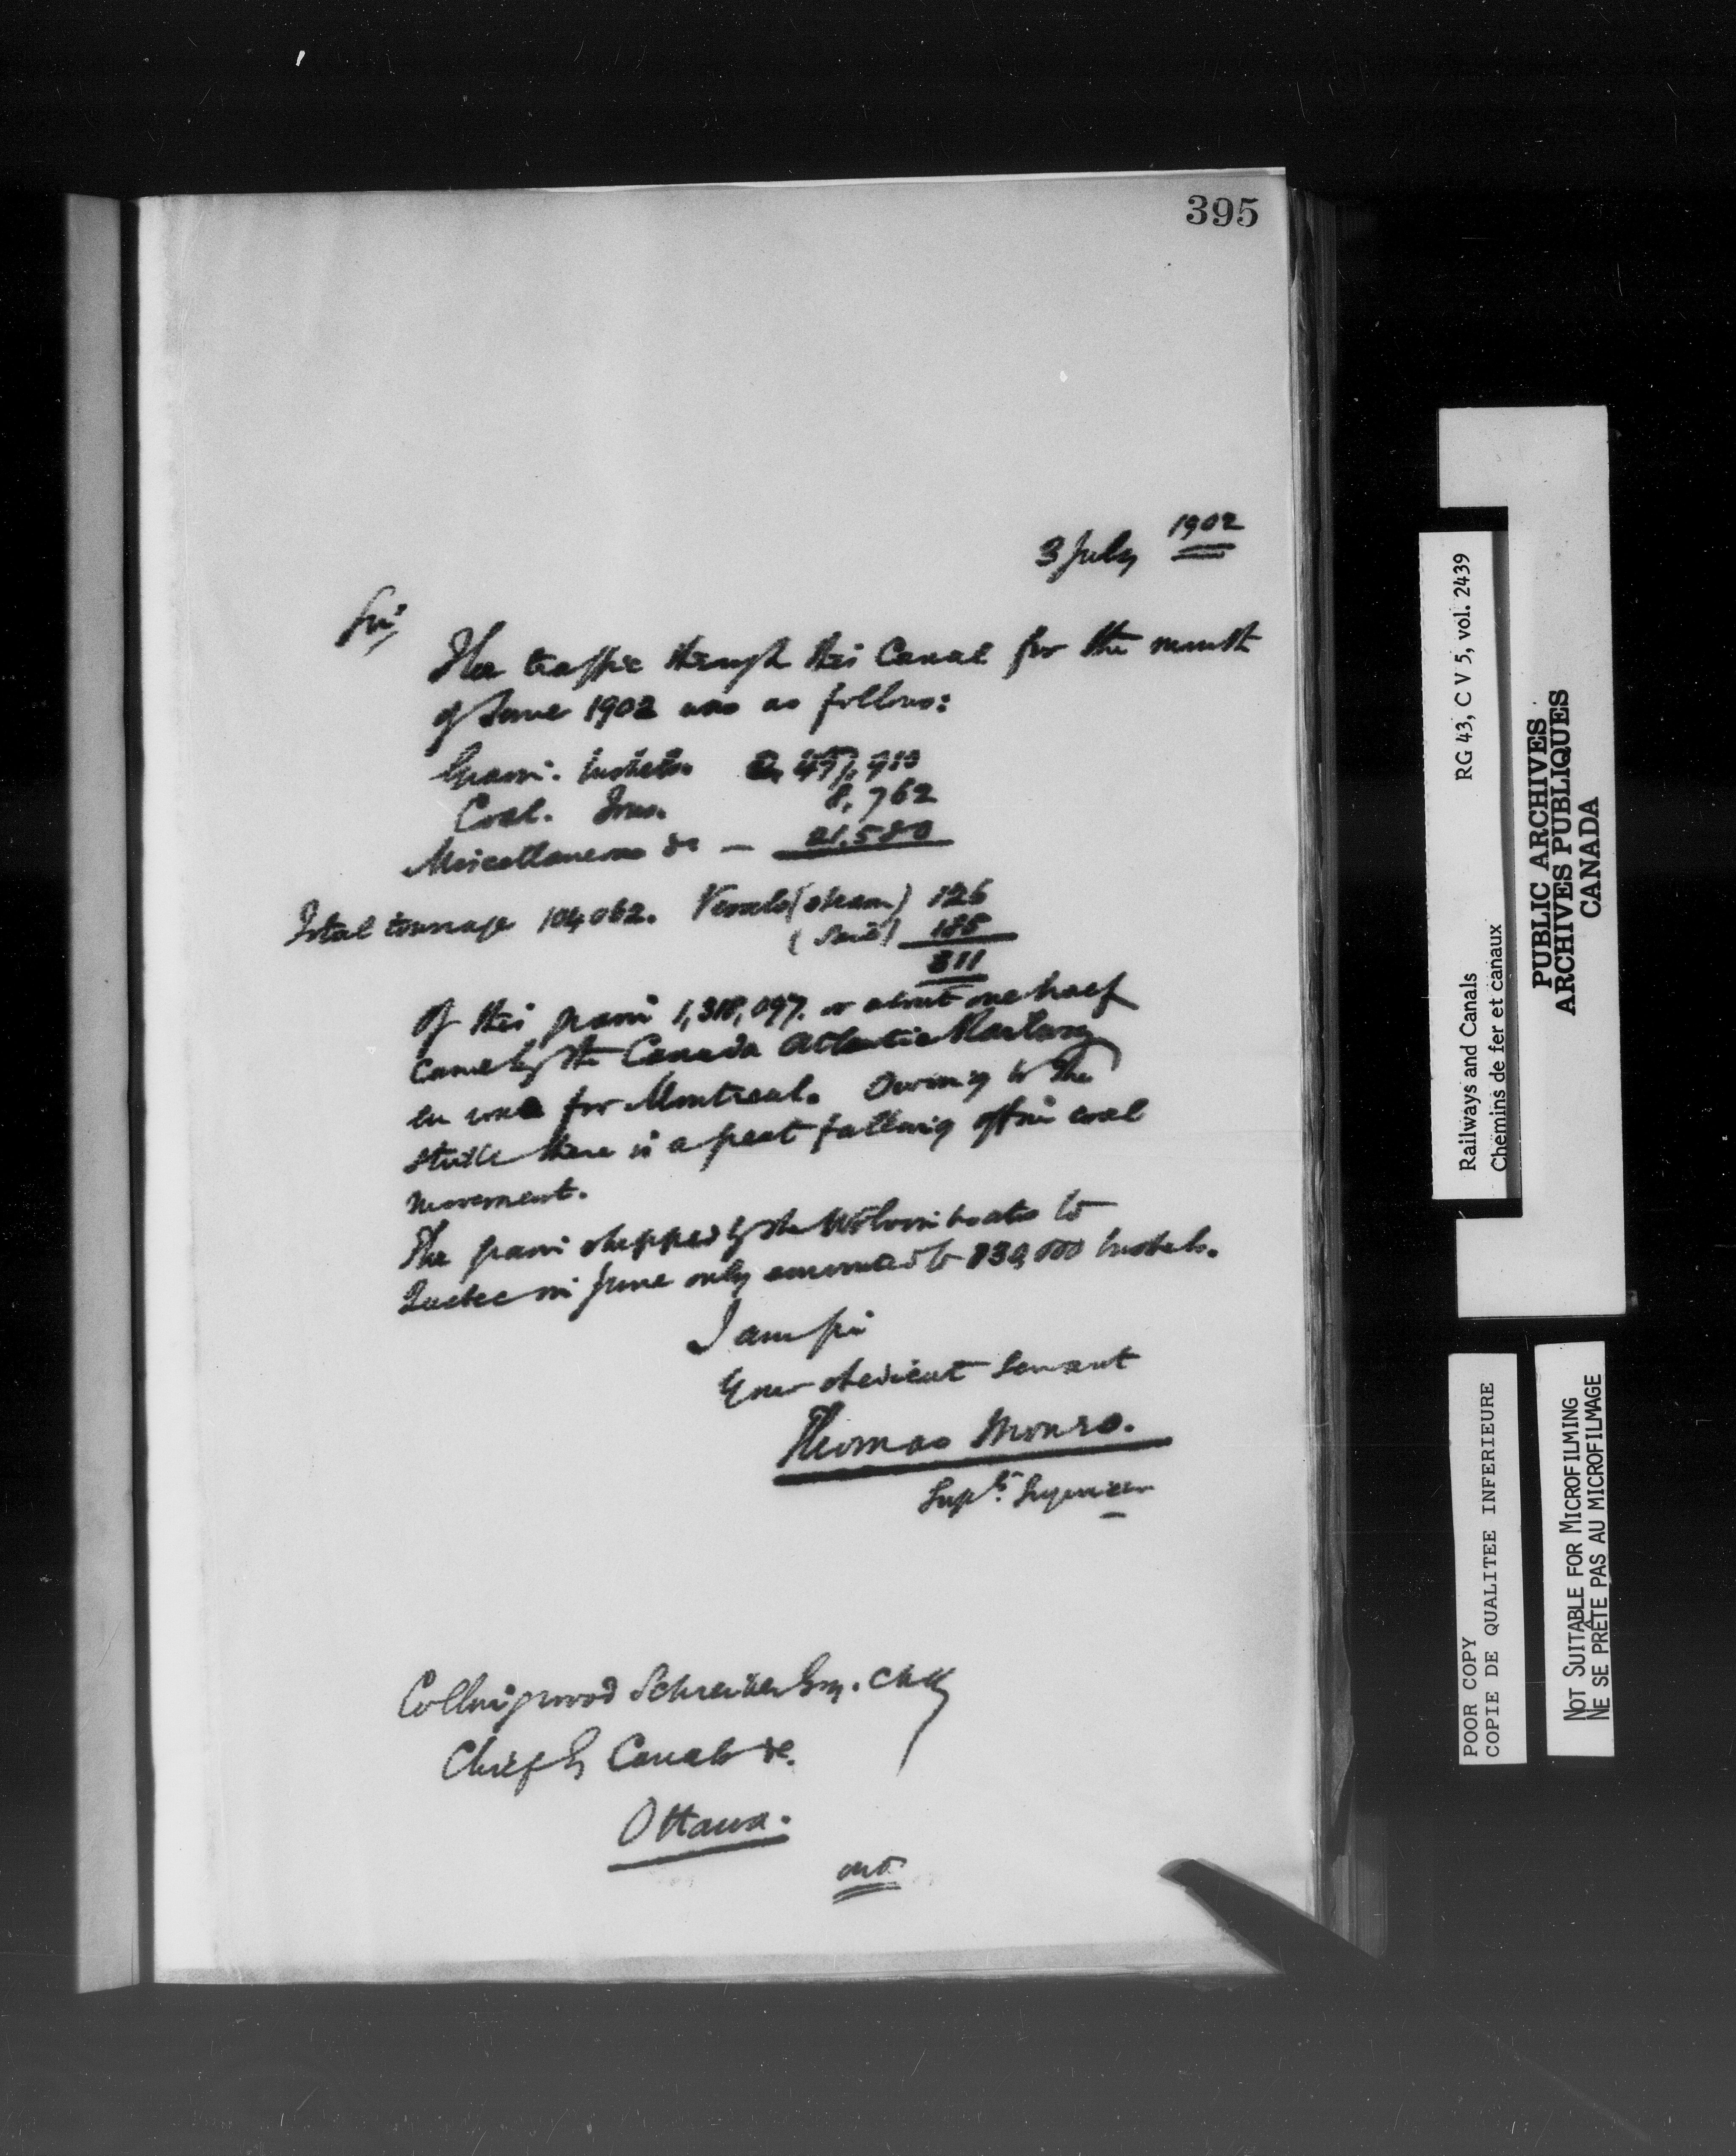 395
3 July 1902
Sir,
The traffic through this Canal for the month
of June 1902 was as follows:
Grain. bushels. 2,457,910
Coal. Tons. 8,762
Miscellaneous do — 21,580
Total tonnage 104,062. Vessels (steam) 126
(sail) 185
311
Of this grain 1,318,097. or about one half
came by the Canada Atlantic Railway
en route for Montreal. Owing to the
strike there is a great falling off in coal
movement.
The grain shipped by the boats to
Quebec in June only amounted to 830,000 bushels.
I am Sir
Your obedient Servant
Thomas Monro.
Supt. Engineer
Collingwood Schreiber Esq. CMG
Chief Eng Canals &c.
Ottawa.
RG 43, C V 5, vol. 2439
Railways and Canals
Chemins de fer et canaux
PUBLIC ARCHIVES
ARCHIVES PUBLIQUES
CANADA
POOR COPY
COPIE DE QUALITEE INFERIEURE
NOT SUITABLE FOR MICROFILMING
NE SE PRÊTE PAS AU MICROFILMAGE